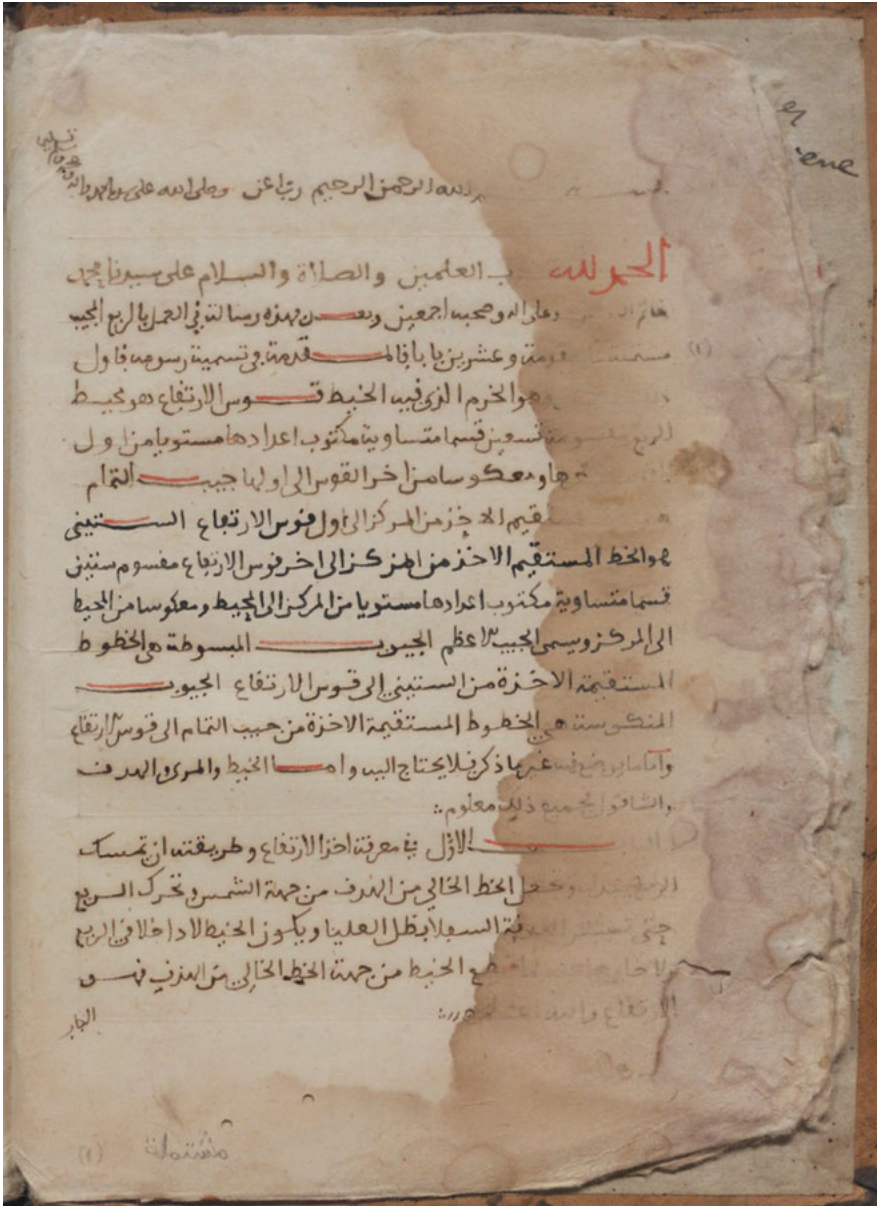 الله الرحمن الرحيم رب اعن وصلى الله على سيدنا محمد واله
الحمد لله رب العلمين والصلاة والسلام على سيدنا محمد
خاتم وعلى اله وصحبه اجمعين وبعـــن فهذه رسالة في العمل بالربع المجيب
مقدمة وعشرين بابا فالمـــقدمة في تسمية رسومه فاول
وهو الخرم الذي فيه الخيط قـــوس الارتفاع هو محيط
الربع مقسومة تسعين قسما متساوية مكتوب اعدادها مستويا من اول
ها ومعكوسا من اخر القوس الى اولها جيبـــ التمام
المستقيم الاخذ من المركز الى اول قوس الارتفاع الستيني
هو الخط المستقيم الاخذ من المركز الى اخر قوس الارتفاع مقسوم ستين
قسما متساوية مكتوب اعدادها مستويا من المركز الى المحيط ومعكوسا من المحيط
الى المركز ويسمى الجيب الاعظم الجيوبـــ المبسوطة هي الخطوط
المستقيمة الاخذة من الستيني الى قوس الارتفاع الجيوبـــ
المنكوسة هي الخطوط المستقيمة الاخذة من جيب التمام الى قوس الارتفاع
واما ما يوضع فيه غير ما ذكر فلا يحتاج اليه وامـــا الخيط والمري والهدف
والشاقول فجميع ذلك معلوم
الاول في معرفة اخذ الارتفاع وطريقته ان تمسك
الربع وتجعل الخط الخالي من الهدف من جهة الشمس وتحرك الربع
حتى تستتر الهدفة السفلا بظل العليا ويكون الخيط لا داخلا في الربع
ولا خارجا عنه فما قطع الخيط من جهة الخط الخالي من الهدف فهو
الارتفاع والله اعلم
(1)
مشتملة (1)